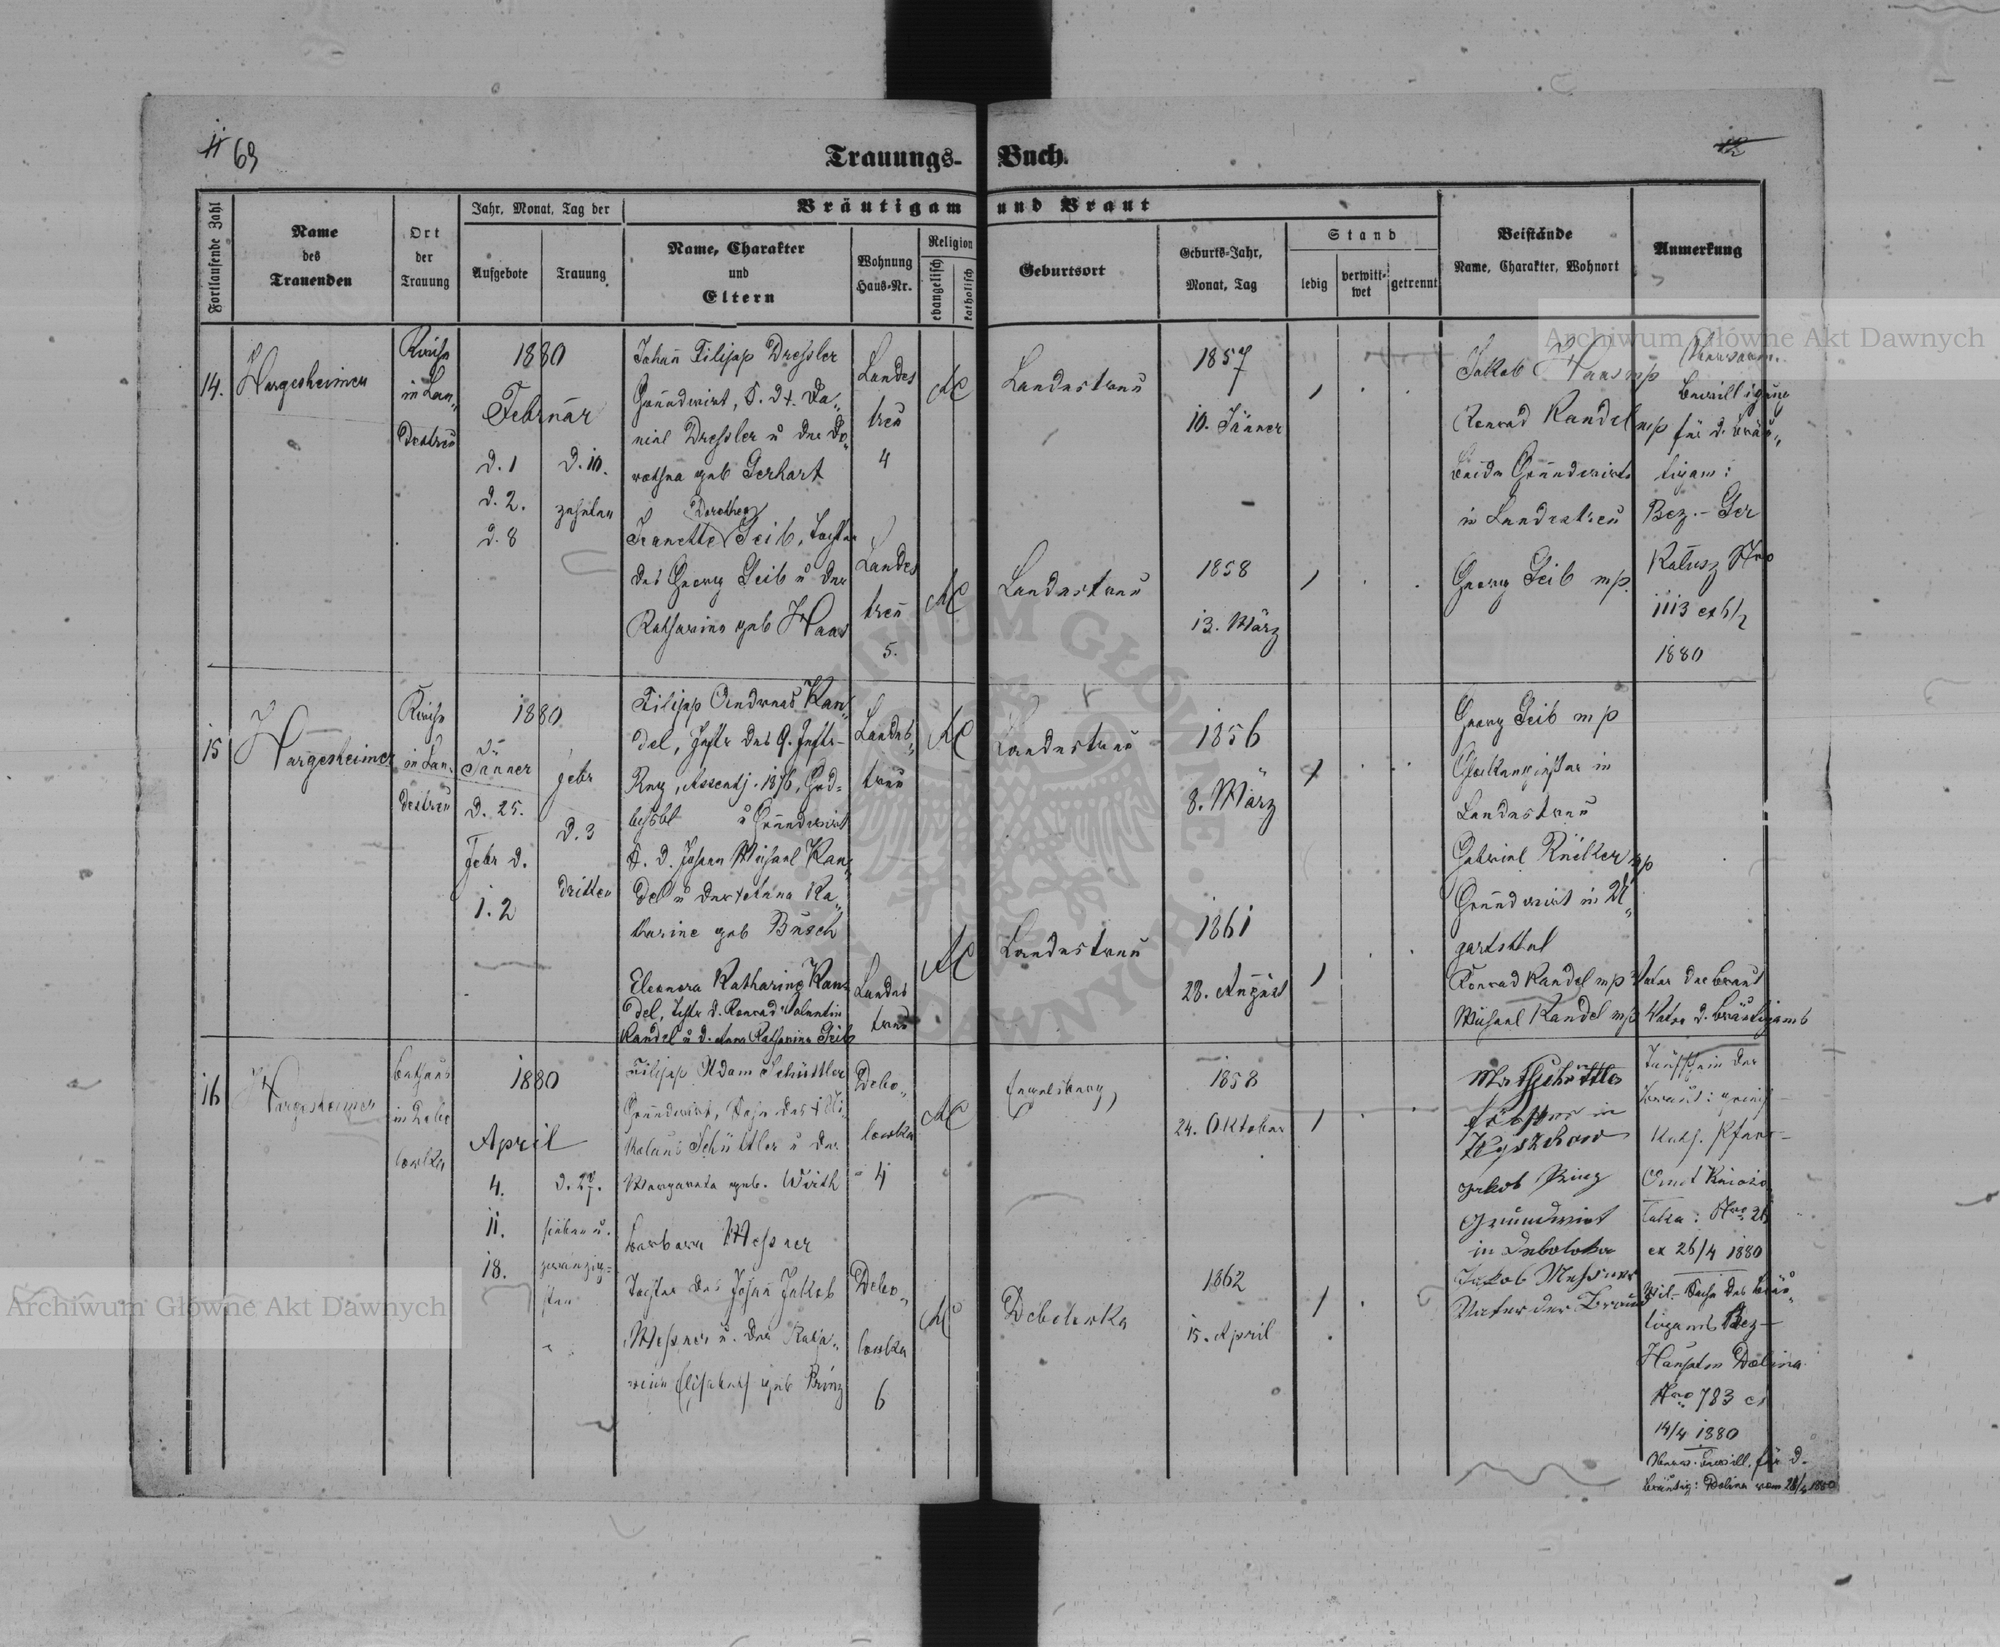 11 69
Trauungs- Buch.
12
Fortlaufende Zahl
Name
des
Trauenden
Ort
der
Trauung
Jahr, Monat, Tag der
Aufgebote
Trauung
Bräutigam und Braut
Name, Charakter
und
Eltern
Wohnung
Haus-Nr.
Religion
evangelisch
katholisch
Geburtsort
Geburts-Jahr,
Monat, Tag
Stand
ledig
verwitt-
wet
getrennt
Beistände
Name, Charakter, Wohnort
Anmerkung
14.
Hargesheimer
Kirche
in Lan„
destreu
1880
Februar
d. 1
d. 2.
d. 8
d. 10.
zehnten
Johann Filipp Dressler
Grundwirt, S. d. +. Da„
niel Dressler u der Do„
rothea geb Gerhart
Dorothea
Jeanette Geib, Tochter
des Georg Geib u der
Katharina geb Haas
Landes
treu
4
Landes
treu
5.
AC
AC
Landestreu
Landestreu
1857
10. Jänner
1858
13. März
Jakob Haas mp
Konrad Kandel mp
beide Grundwirte
in Landestreu
Georg Geib mp.
Bewilligung
für d. Bräu„
tigam:
Bez.- Ger
Kalusz Nro
1113 ex 6/2
1880
15
Hargesheimer
Kirche
in Lan„
destreu
1880
Jänner
d. 25.
Febr d.
1. 2
Febr
d. 3
dritten
Filipp Andreas Kan„
del,
u Grundwirt
S. d. Johann Michael Kan„
del u der + Anna Ka„
tharine geb Busch
Eleonora Katharine Kan„
del, Tochter d. Konrad Valentin
Kandel u d. Anna Katharina Geib
Landes„
treu
Landes
treu
AC
AC
Landestreu
Landestreu
1856
8. März
1861
28. August
Georg Geib mp
in
Landestreu
Gabriel mp
Grundwirt in U„
gartsthal
Konrad Kandel mp Vater der Braut
Michael Kandel mp Vater d. Bräutigams
16
Hargesheimer
Bethaus
in Debo
lowka
1880
April
4.
11.
18.
d. 27.
sieben u.
zwanzig=
sten
Filipp Adam Schüttler
Grundwirt, Sohn des + Ni„
kolaus Schüttler u der
Margareta geb. Wirth
Barbara Messner
Tochter des Johann Jakob
Messner u. der Katha„
rina Elisabeth geb Prinz
Debo„
lowka
4
Debo„
lowka
6
AC
AC
Engelsberg
Debolowka
1858
24. Oktober
1862
15. April
in
Jakob Prinz
Grundwirt
in Debolowka
Jakob Messner
Vater der Braut
Taufschein der
Braut:
Kath. Pfarr-
ex 26/4 1880
Mil- Sache des Bräu„
tigams Bez-
Dolina
Nro 783 ex
14/4 1880
für d.
Bräutig: Dolina vom 28/4 1880
Archiwum Główne Akt Dawnych
Archiwum Główne Akt Dawnych
ARCHIWUM GŁÓWNE AKT DAWNYCH